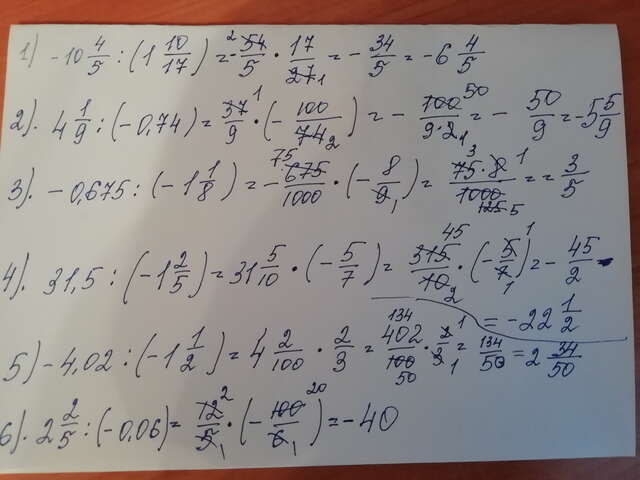 1) -10 4/5 : (1 10/17) = -54/5 · 17/27 = -34/5 = -6 4/5
2). 4 1/9 : (-0,74) = 37/9 · (-100/74) = -100/9·2 = -50/9 = -5 5/9
3). -0,675 : (-1 1/8) = -675/1000 · (-8/9) = 75·8/1000 = = 3/5
4). 31,5 : (-1 2/5) = 31 5/10 · (-5/7) = 315/10 · (-5/7) = -45/2
= -22 1/2
5) -4,02 : (-1 1/2) = 4 2/100 · 2/3 = 402/100 · 2/3 = 134/50 = 2 34/50
6). 2 2/5 : (-0,06) = 12/5 · (-100/6) = -40